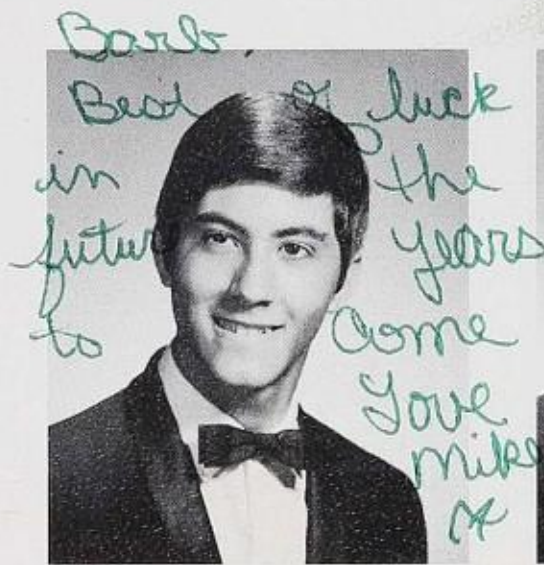 Barb,
Best of luck
in the
future years
to come
Love
Mike